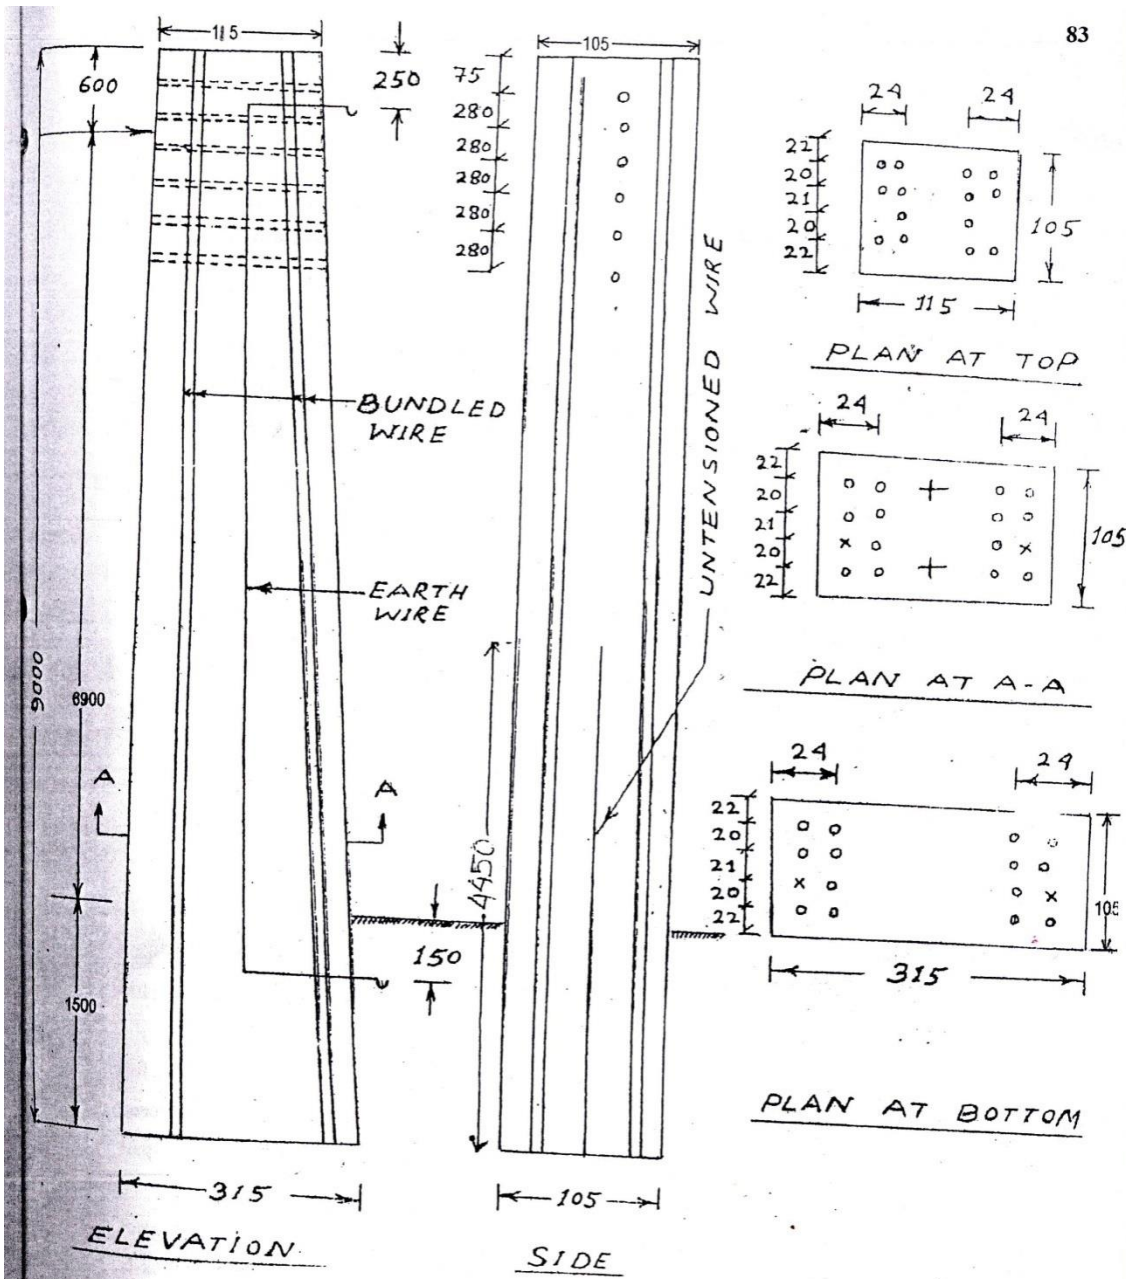 83
115
600
250
9000
6900
1500
BUNDLED
WIRE
EARTH
WIRE
A
A
150
315
ELEVATION
105
75
280
280
280
280
280
4450
UNTENSIONED WIRE
105
SIDE
24
24
22
20
21
20
22
105
115
PLAN AT TOP
24
24
22
20
21
20
22
105
PLAN AT A-A
24
24
22
20
21
20
22
105
315
PLAN AT BOTTOM